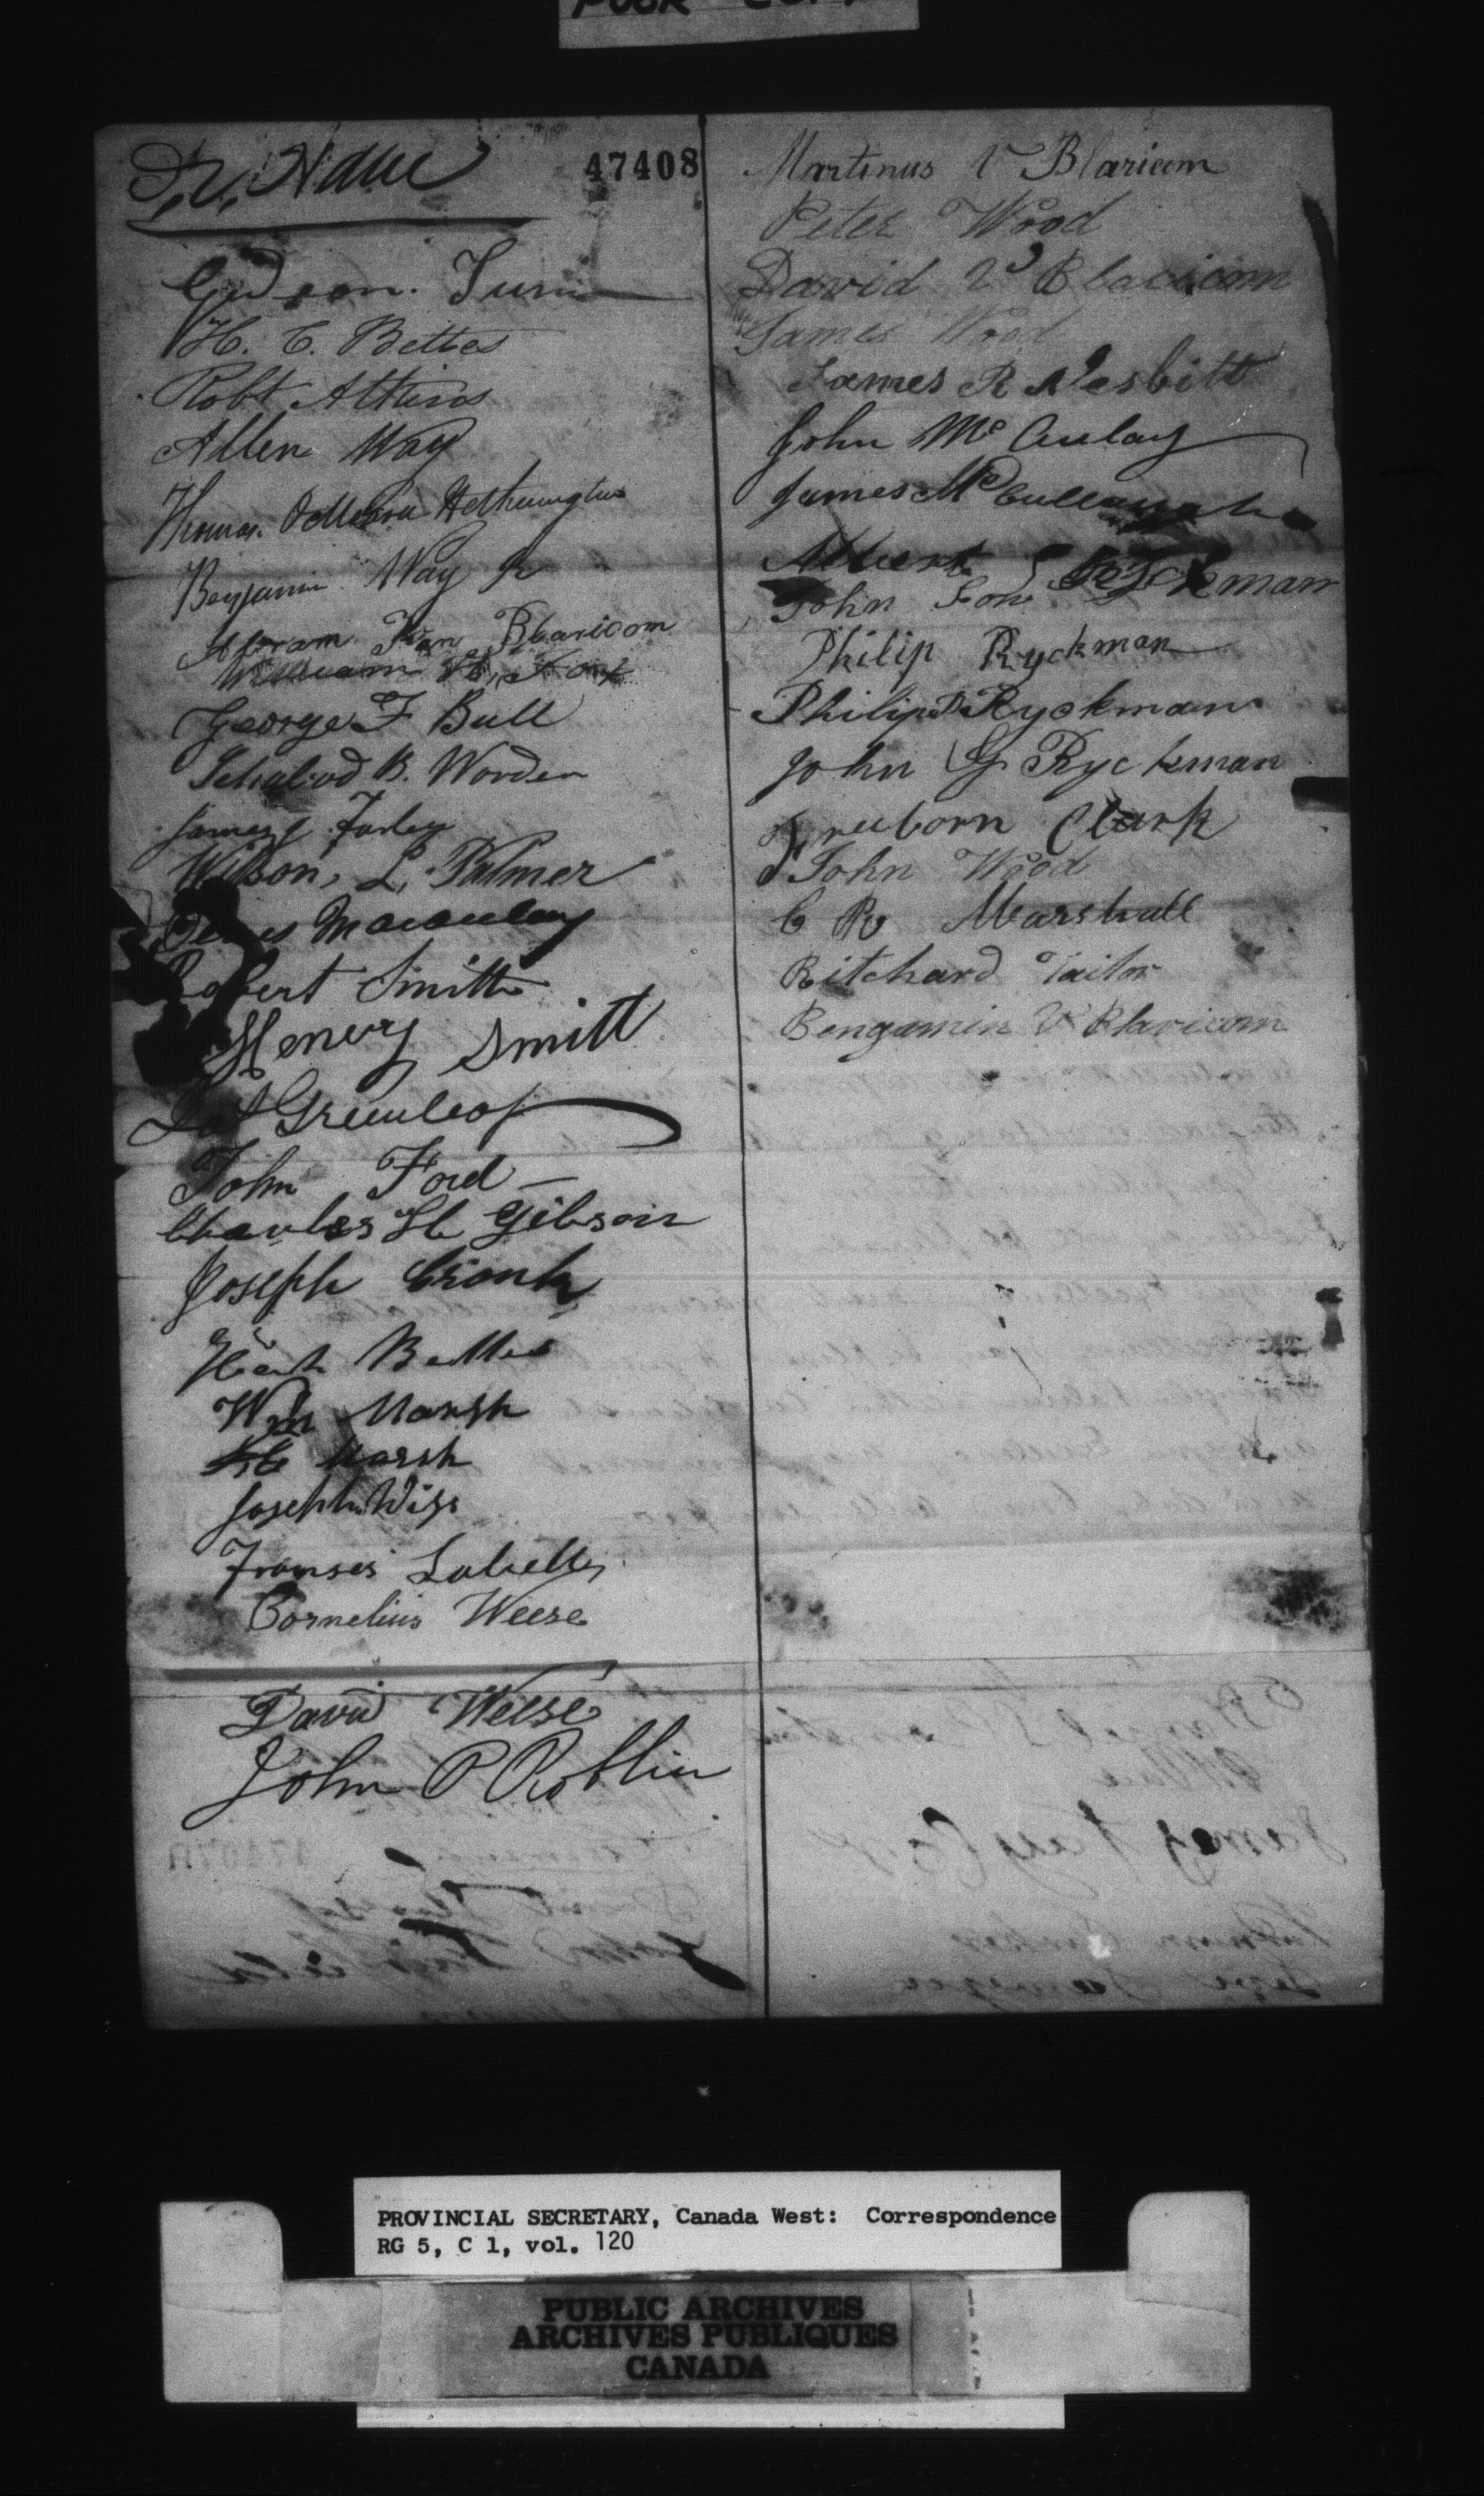 POOR COPY
47408
Gideon Turn
H. C. Bettes
Robt Atkins
Allen Way
Thomas Hetherington
Benjamin Way Jr
Abram Van Blaricom
William H. Fox
George F Bull
Ichabod B. Worden
James Farley
Wilson L. Palmer
James Macauley
Robert Smith
Henery Smith
Greenleaf
John Ford
Charles H Gibson
Joseph Cronk
Bettes
Wm Marsh
Marsh
Joseph Wiss
Franses Labelle
Cornelius Weese
David Weese
John P Roblin
Martinus V Blaricom
Peter Wood
David V Blaricom
James Wood
James R Nesbitt
John Mc Aulay
James McCullough
Albert Ryckman
John Fow
Philip Ryckman
Philip D Ryckman
John G Ryckman
Freeborn Clark
John Wood
C R Marshall
Ritchard Tailor
Bengamin V Blaricom
PROVINCIAL SECRETARY, Canada West: Correspondence
RG 5, C 1, vol. 120
PUBLIC ARCHIVES
ARCHIVES PUBLIQUES
CANADA